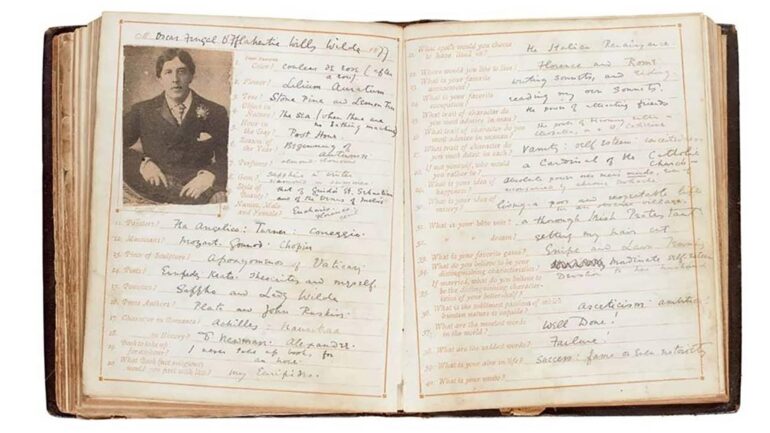 Oscar Fingal O'Flahertie Wills Wilde 1877
Color? couleur de rose (often
Flower? Lilium Auratum
Tree? Stone Pine and Lemon Tree
Object in
Nature? The sea (when there are
no bathing machines)
Hour in
the Day? Post Hour.
Season of
the Year? Beginning of
Autumn
Perfume? almond blossoms
Gem? Sapphire in winter
in summer
Style of
Beauty? that of Guido's St. Sebastian
and of the Venus of Melos
Names, Male
and Female? Eucharis
11. Painters? Fra Angelico: Turner: Correggio.
12. Musicians? Mozart. Gounod. Chopin
13. Piece of Sculpture? Apoxyomenos of Vatican
14. Poets? Euripides, Keats, Theocritus and myself.
15. Poetesses? Sappho and Lady Wilde
16. Prose Authors? Plato and John Ruskin.
17. Character in Romance? Achilles: Nausicaa
18. in History? Dr Newman. Alexander.
19. Book to take up
for an hour? I never take up books for
an hour.
20. What Book (not religious)
would you part with last? my Euripides.
21. What epoch would you choose
to have lived in? the Italian Renaissance.
22. Where would you like to live? Florence and Rome
23. What is your favorite
amusement? writing sonnets, and riding.
24. What is your favorite
occupation? reading my own sonnets.
25. What trait of character do
you most admire in man? the power of attracting friends
26. What trait of character do
you most admire in woman?
27. What trait of character do
you most detest in each? Vanity: self esteem:
28. If not yourself, who would
you rather be? a Cardinal of the Catholic
Church
29. What is your idea of
absolute power over men's minds, even if
accompanied by chronic toothache
30. What is your idea of
misery? living a poor and respectable life
in an obscure village.
31. What is your bête noir? a thorough Irish Protestant
32. dream? getting my hair cut
33. What is your favorite game? Snipe and Lawn Tennis
34. What do you believe to be your
distinguishing characteristics? inordinate self-esteem
35. If married, what do you believe
to be the distinguishing character-
istics of your better-half? Devotion to her husband
36. What is the sublimest passion of which
human nature is capable? asceticism: ambition
37. What are the sweetest words
in the world? Well Done!
38. What are the saddest words? Failure.
39. What is your aim in life? success: fame or even notoriety
40. What is your motto?